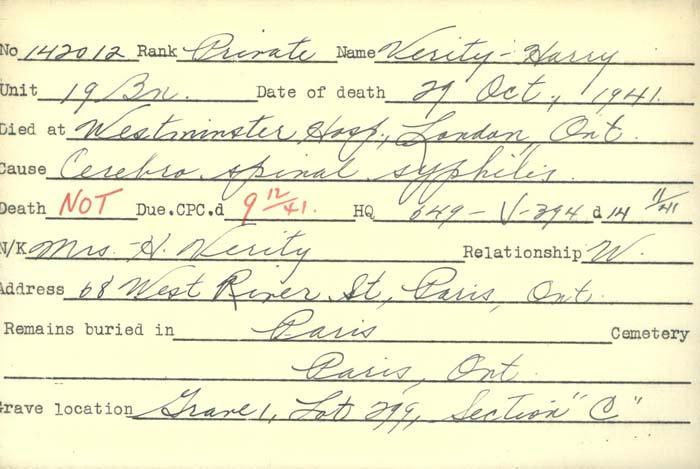 No 142012 Rank Private Name Verity - Harry
Unit 19 Bn. Date of death 29 Oct, 1941.
Died at Westminster Hosp, London, Ont.
Cause Cerebro spinal syphilis
Death NOT Due. CPC.d 9 12/41. HQ 649-V-394 d 14 11/41
N/K Mrs. H. Verity Relationship W.
Address 68 West River St, Paris, Ont.
Remains buried in Paris Cemetery
Paris, Ont.
Grave location Grave 1, Lot 299, Section "C"